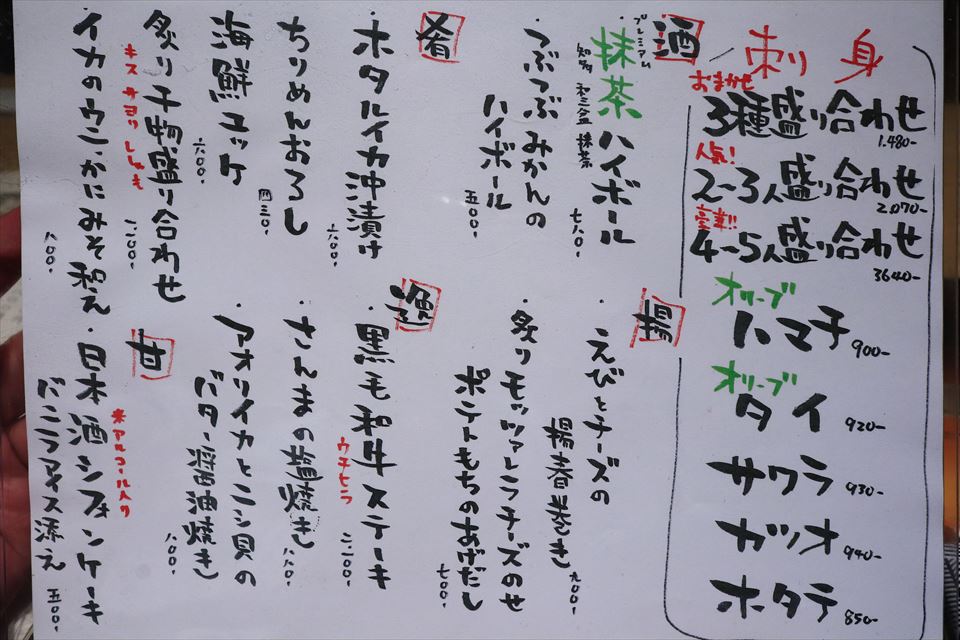 刺り身
おまかせ
3種盛り合わせ
1.480-
人気!
2~3人盛り合わせ
2.070-
豪華!!
4~5人盛り合わせ
3640-
オリーブ
ハマチ 900-
オリーブ
タイ 920-
サワラ 930-
カツオ 940-
ホタテ 850-
酒
・プレミアム
抹茶ハイボール
知多 和三盆 抹茶
七八〇.
・つぶつぶみかんの
ハイボール
五〇〇.
肴
ホタルイカ沖漬け
六〇〇.
ちりめんおろし
四三〇.
海鮮ユッケ
六〇〇.
炙り干物盛り合わせ
キス サヨリ ししゃも
一.一〇〇.
イカのウニ・かにみそ和え
八〇〇.
揚
・えびとチーズの
揚春巻き
九〇〇.
・炙りモッツァレラチーズのせ
ポテトもちのあげだし
七〇〇.
・黒毛和牛ステーキ
ウチヒラ
二.二〇〇.
・さんまの塩焼き
八八〇.
・アオリイカとニシ貝の
バター醤油焼き
八〇〇.
甘
・日本酒シフォンケーキ
※アルコール入り
バニラアイス添え
五〇〇.